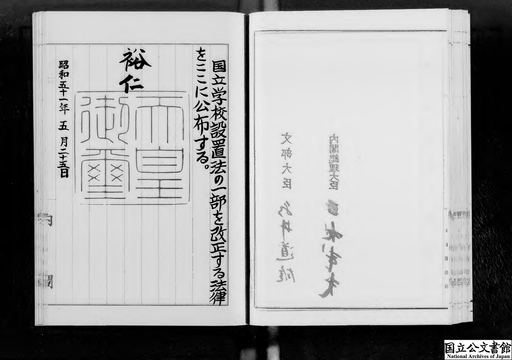 国立学校設置法の一部を改正する法律
をここに公布する。
裕仁
天皇
御璽
昭和五十一年五月二十五日
内閣
内閣総理大臣
文部大臣
永井道雄
国立公文書館
National Archives of Japan